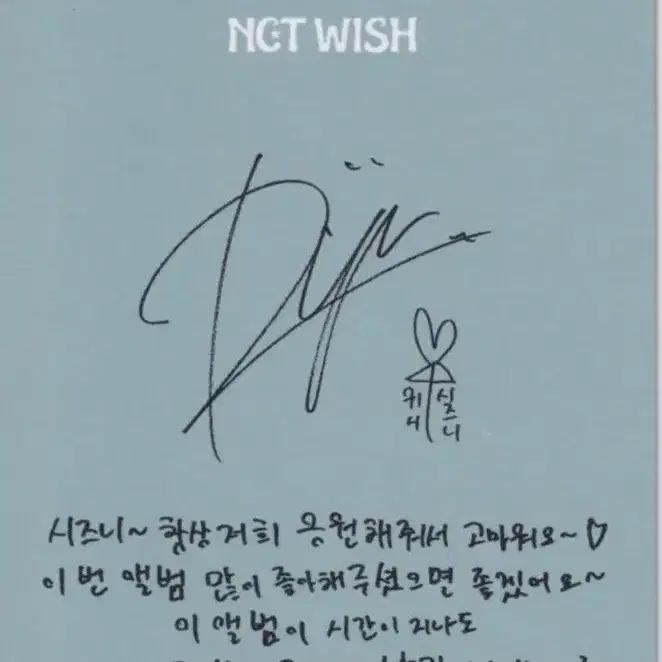 NCT WISH
시즈니
시즈니~ 항상 저희 응원해줘서 고마워요~♡
이번 앨범 많이 좋아해주셨으면 좋겠어요~
이 앨범이 시간이 지나도